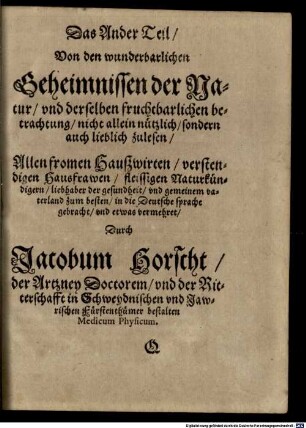 Das Ander Teil /
Von den wunderbarlichen
Geheimnissen der Na-
tur / vnd derselben fruchtbarlichen be-
trachtung / nicht allein nützlich / sondern
auch lieblich zulesen /
Allen fromen Haußwirten / versten-
digen Hausfrawen / fleissigen Naturkün-
digern / liebhaber der gesundheit / vnd gemeinem va-
terland zum besten / in die Deutsche sprache
gebracht / vnd etwas vermehret /
Durch
Jacobum Horscht /
der Artzney Doctorem / vnd der Rit-
terschafft in Schweydnischen vnd Jaw-
rischen Fürstenthümer bestalten
Medicum Physicum.
G